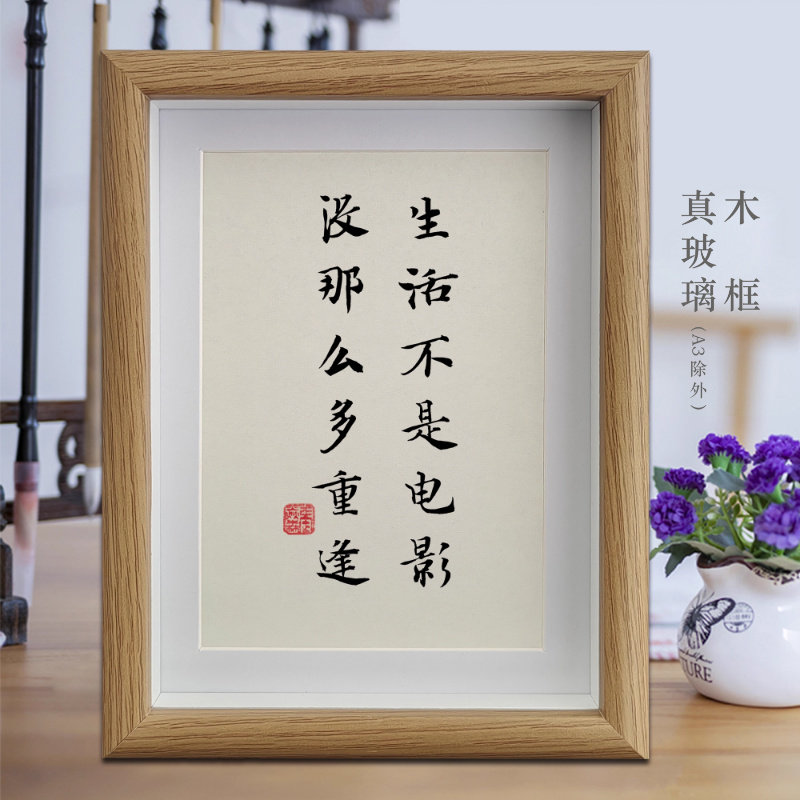 生活不是电影
没那么多重逢
木框
真玻璃(A3除外)
TURE